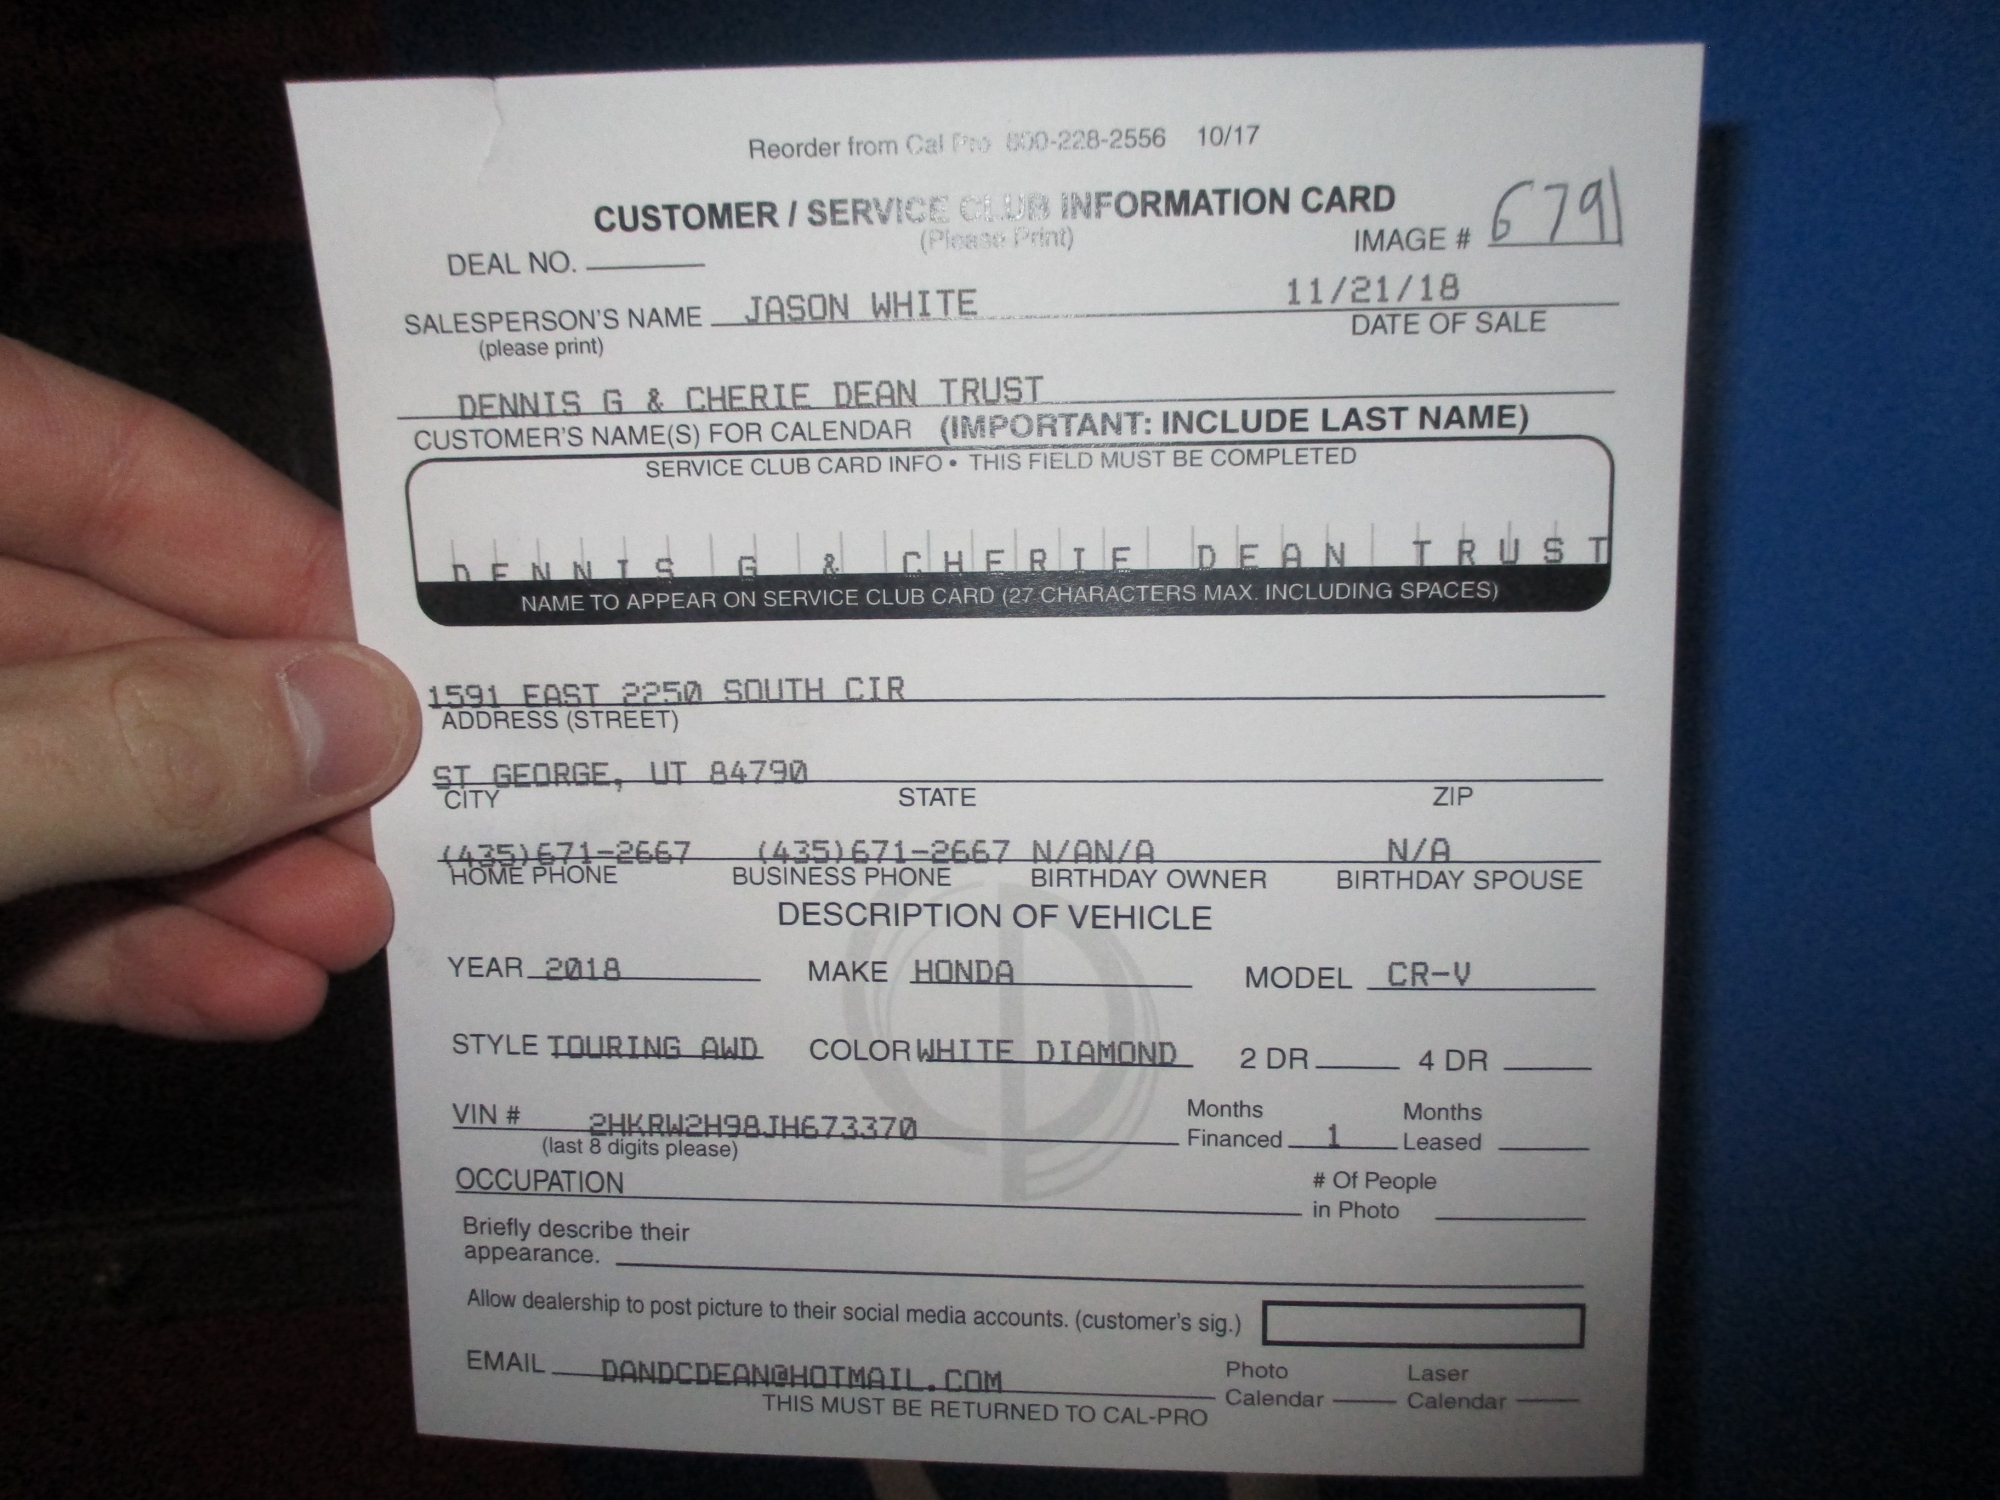 Reorder from Cal Pro 800-228-2556 10/17
CUSTOMER / SERVICE CLUB INFORMATION CARD
(Please Print)
DEAL NO. IMAGE # 6791
SALESPERSON'S NAME JASON WHITE 11/21/18
(please print) DATE OF SALE
DENNIS G & CHERIE DEAN TRUST
CUSTOMER'S NAME(S) FOR CALENDAR (IMPORTANT: INCLUDE LAST NAME)
SERVICE CLUB CARD INFO • THIS FIELD MUST BE COMPLETED
DENNIS G & CHERIE DEAN TRUST
NAME TO APPEAR ON SERVICE CLUB CARD (27 CHARACTERS MAX. INCLUDING SPACES)
1591 EAST 2250 SOUTH CIR
ADDRESS (STREET)
ST GEORGE, UT 84790
CITY STATE ZIP
(435)671-2667 (435)671-2667 N/AN/A N/A
HOME PHONE BUSINESS PHONE BIRTHDAY OWNER BIRTHDAY SPOUSE
DESCRIPTION OF VEHICLE
YEAR 2018 MAKE HONDA MODEL CR-V
STYLE TOURING AWD COLOR WHITE DIAMOND 2 DR 4 DR
VIN # 2HKRW2H98JH673370 Months Financed 1 Months Leased
(last 8 digits please)
OCCUPATION # Of People in Photo
Briefly describe their
appearance.
Allow dealership to post picture to their social media accounts. (customer's sig.)
EMAIL DANDCDEAN@HOTMAIL.COM Photo Calendar Laser Calendar
THIS MUST BE RETURNED TO CAL-PRO